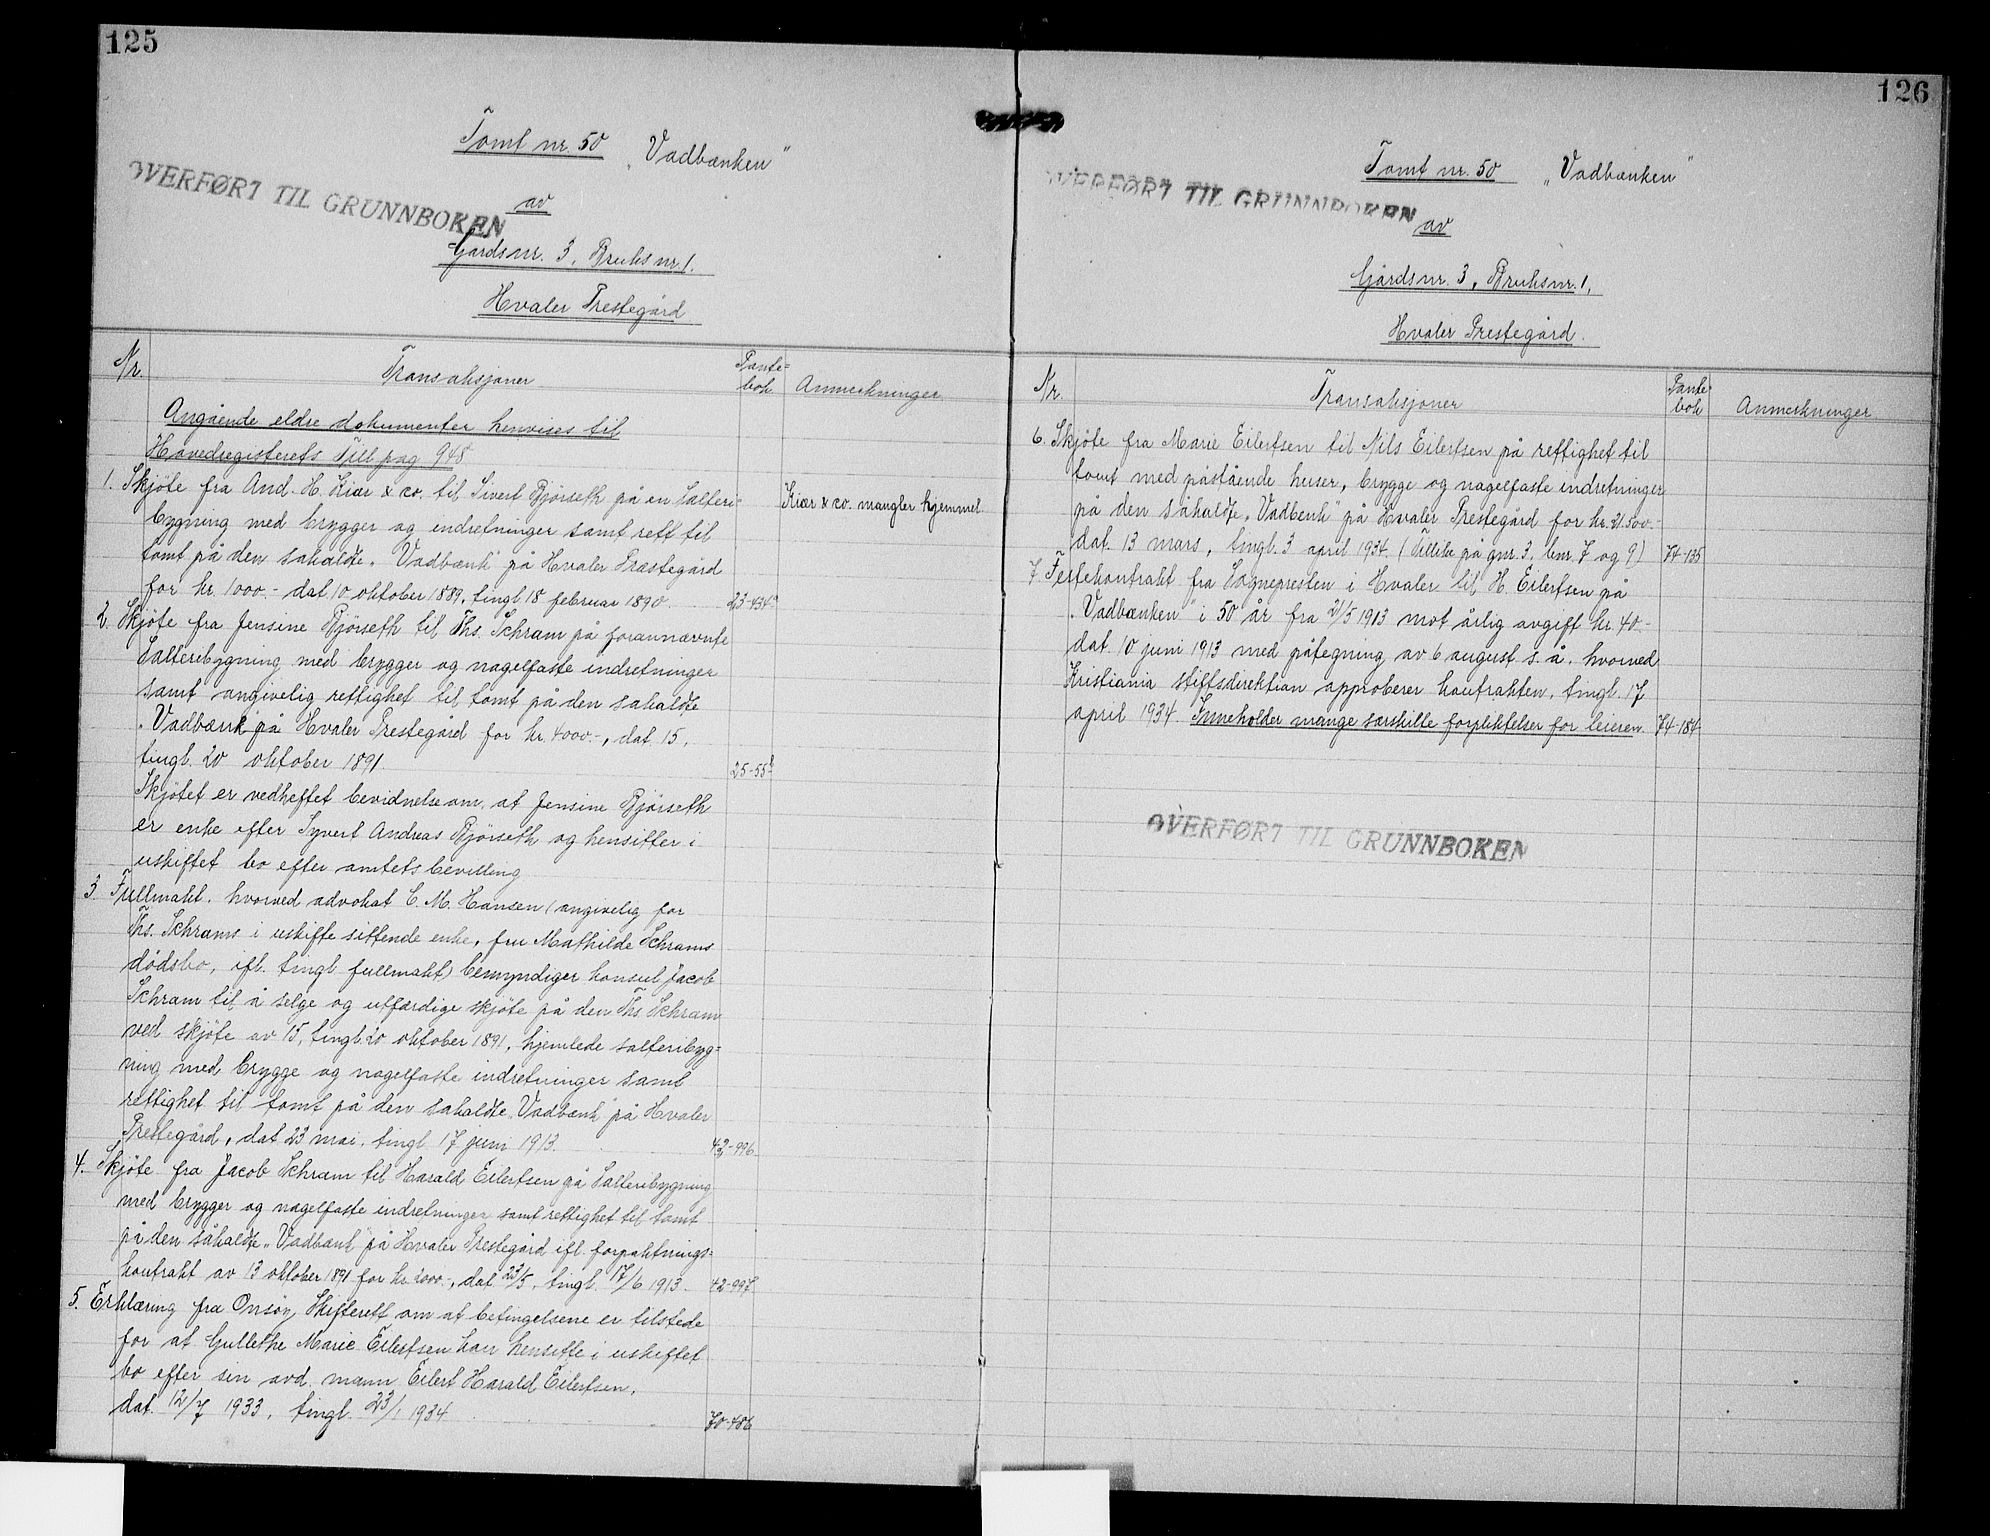 125
Tomt nr. 50 „Vadbænken"
OVERFØRT TIL GRUNNBOKEN
av
Gårdsnr. 3, Bruksnr. 1.
Hvaler Prestegård
Nr. Transaksjoner Pante= bok Anmerkninger
Angående eldre dokumenter henvises til
Hovedregisterets Till pag 948
1. Skjöte fra And. H. Kiær & co. til Sivert Björseth på en Salteri= Kiær & co. mangler hjemmel
bygning med brygger og indretninger samt rett til
tomt på den såkaldte „Vadbænk" på Hvaler Præstegård
for kr. 1000.- dat 10 oktober 1889, tingl 18 februar 1890. 23-434
2. Skjöte fra Jensine Björseth til Ths. Schram på forannævnte
Salteribygning med brygger og nagelfaste indretninger
samt angivelig rettighet til tomt på den såkaldte
„Vadbænk" på Hvaler Prestegård for kr. 4000.-, dat. 15,
tingl. 20 oktober 1891. 25-55
Skjötet er vedheftet bevidnelse om, at Jensine Björseth
er enke efter Syvert Andreas Björseth og hensitter i
uskiftet bo efter amtets bevilling
3. Fullmakt, hvorved advokat C. M. Hansen (angivelig for
Ths. Schrams i uskifte sittende enke, fru Mathilde Schrams
dödsbo, ifl. tingl. fullmakt) bemyndiger konsul Jacob
Schram til å selge og utfærdige skjöte på den Ths. Schram
ved skjöte av 15, tingl. 20 oktober 1891, hjemlede salteribyg=
ning med brygge og nagelfaste indretninger samt
rettighet til tomt på den såkaldte „Vadbænk" på Hvaler
Prestegård, dat 23 mai, tingl. 17 juni 1913. 42-996
4. Skjöte fra Jacob Schram til Harald Eilertsen på Salteribygning
med brygger og nagelfaste indretninger samt rettighet til tomt
på den såkaldte „Vadbænk" på Hvaler Prestegård ifl. forpaktnings=
kontrakt av 13 oktober 1891 for kr. 2000.-, dat 23/5, tingl. 17/6 1913. 42-997
5. Erklæring fra Onsöy Skifterett om at betingelsene er tilstede
for at Gullethe Marie Eilertsen kan hensitte i uskiftet
bo efter sin avd. mann Eilert Harald Eilertsen,
dat. 12/7 1933, tingl. 23/1 1934 70-486
126
Tomt nr. 50 „Vadbænken"
OVERFØRT TIL GRUNNBOKEN
av
Gårdsnr. 3, Bruksnr. 1.
Hvaler Prestegård.
Nr. Transaksjoner Pante= bok Anmerkninger
6. Skjöte fra Marie Eilertsen til Nils Eilertsen på rettighet til
tomt med påstående huser, brygge og nagelfaste indretninger
på den såkaldte „Vadbænk" på Hvaler Prestegård for kr. 21.500.-
dat. 13 mars, tingl. 3 april 1934. (Tillike på gnr. 3, bnr. 7 og 9) 74-135
7. Festekontrakt fra Sognepresten i Hvaler til H. Eilertsen på
„Vadbænken" i 50 år fra 21/5 1913 mot årlig avgift kr. 40.-
dat. 10 juni 1913 med påtegning av 6 august s. å. hvorved
Kristiania stiftsdirektion approberer kontrakten, tingl. 17
april 1934. Inneholder mange særskilte forpliktelser for leieren. 74-184
OVERFØRT TIL GRUNNBOKEN